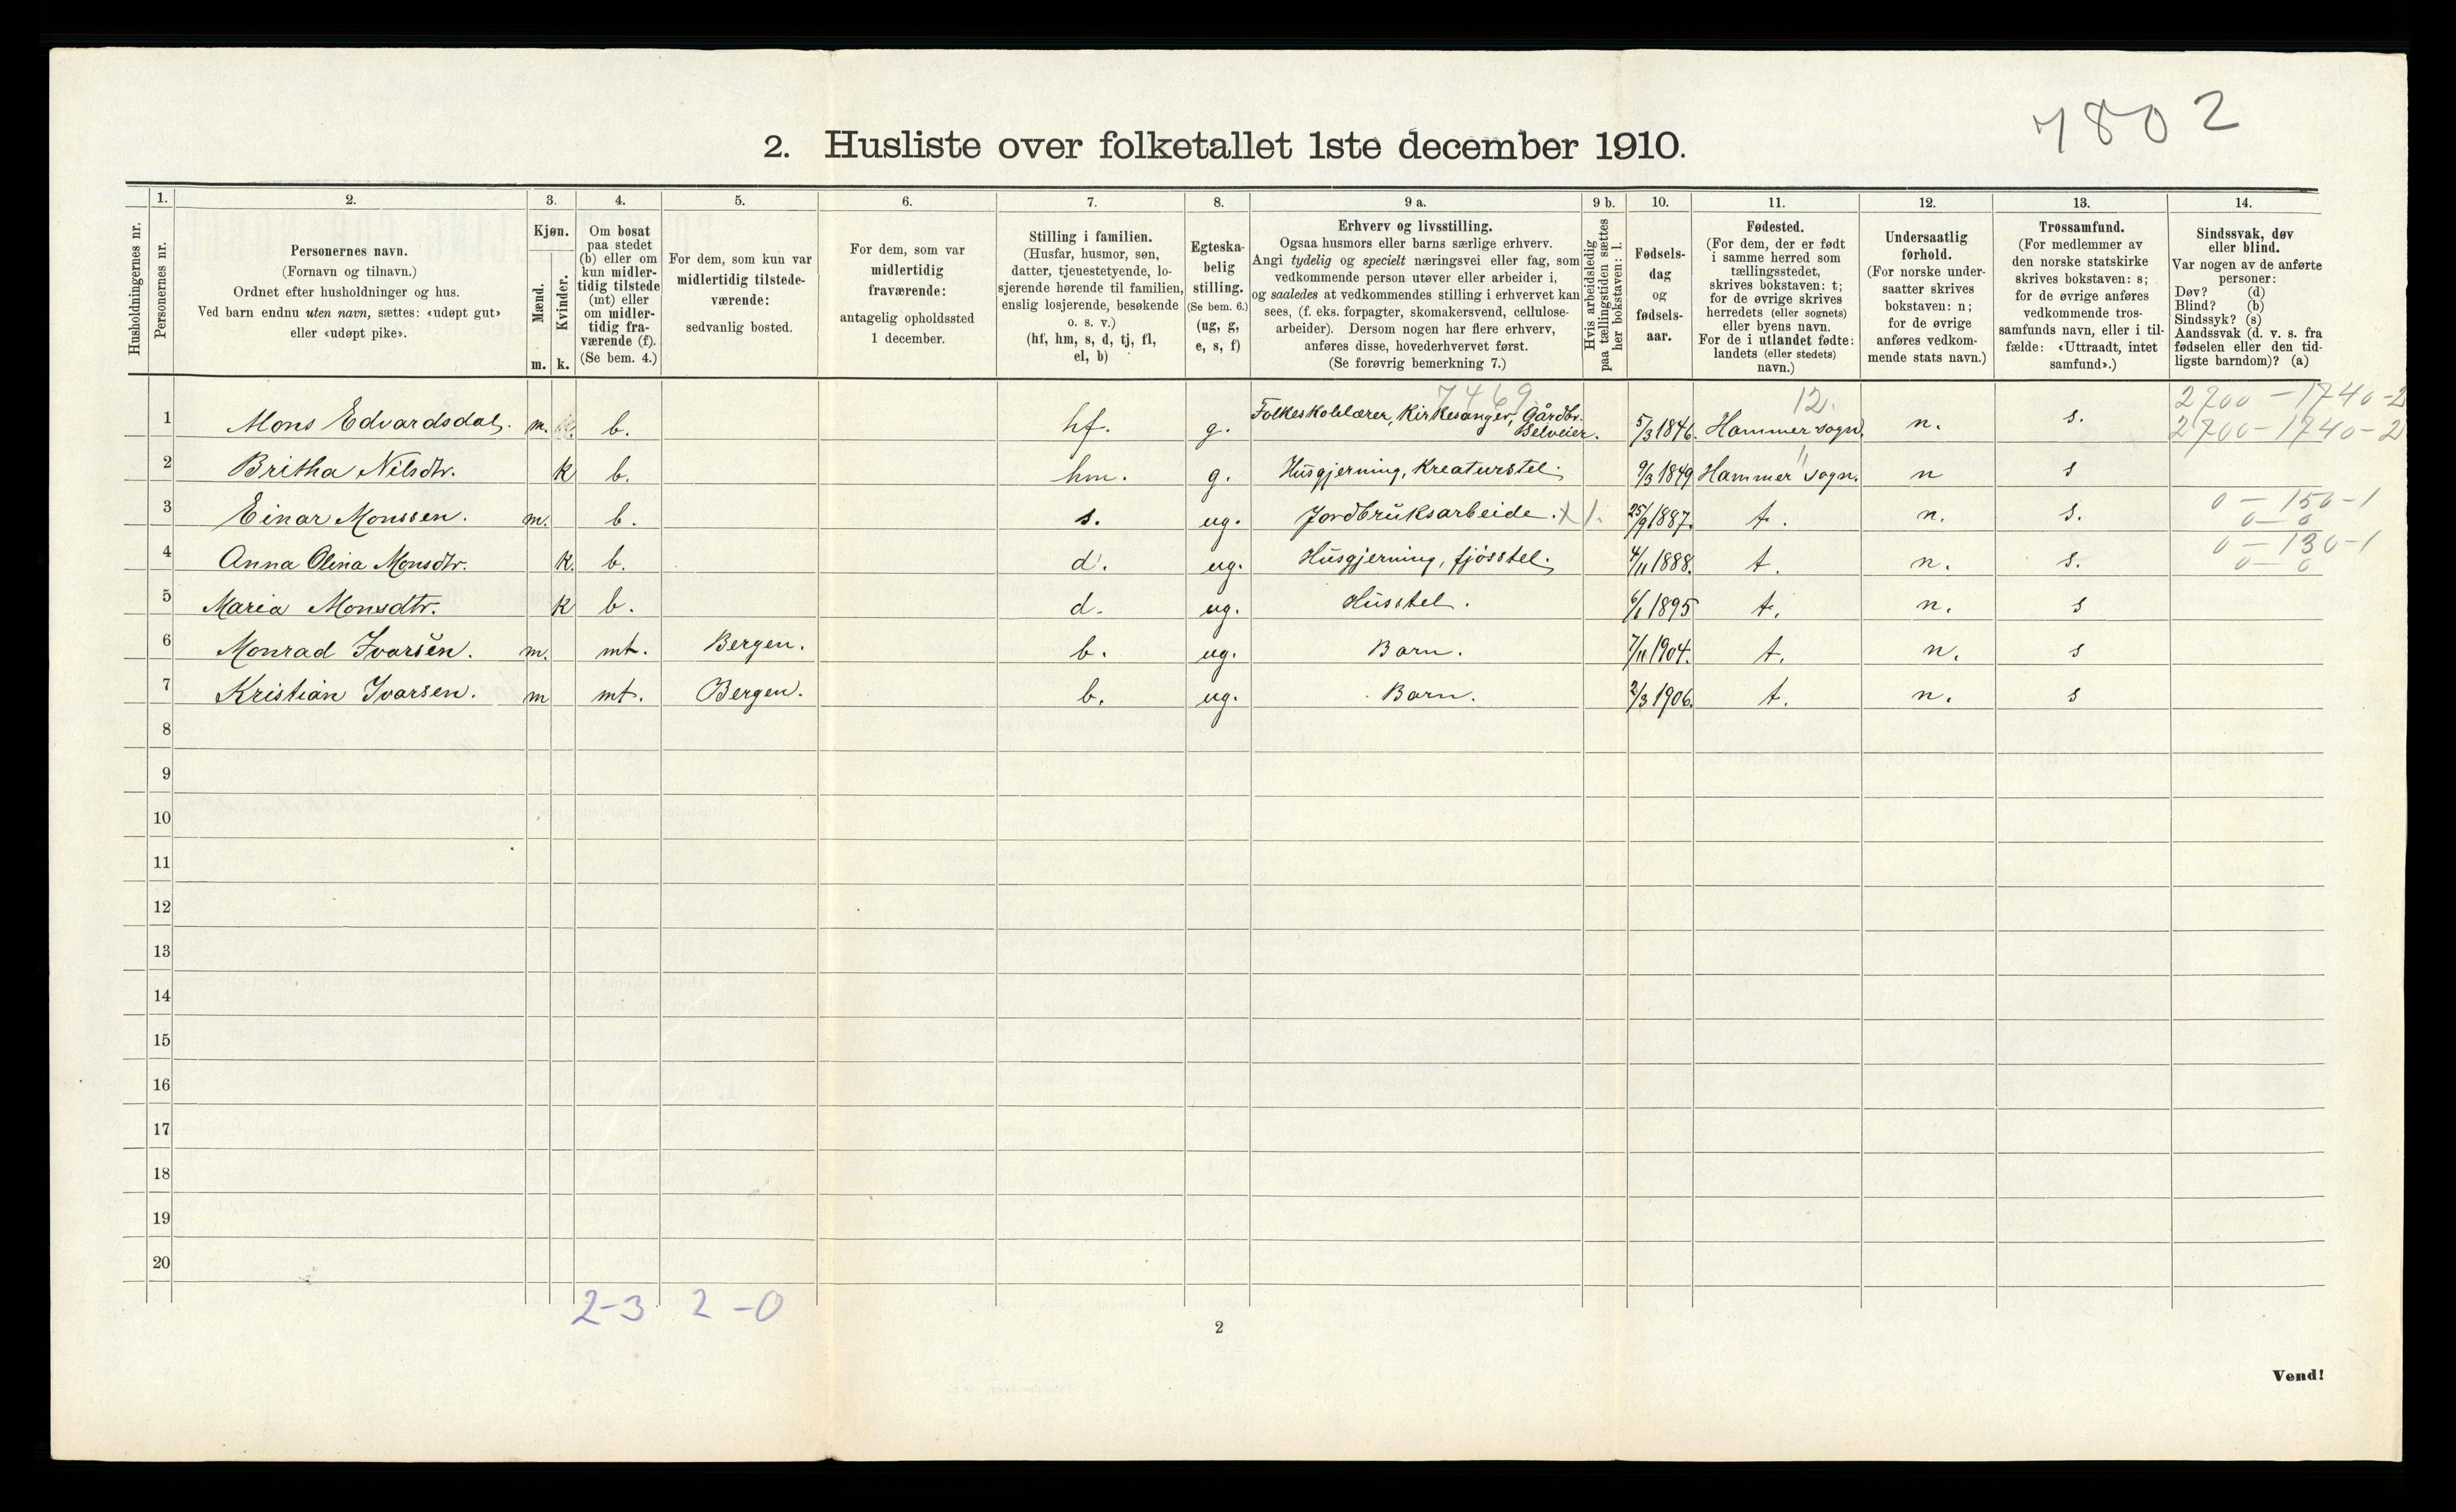 7802
2. Husliste over folketallet 1ste december 1910.
Husholdningernes nr.
1.
Personernes nr.
2.
Personernes navn.
(Fornavn og tilnavn.)
Ordnet efter husholdninger og hus.
Ved barn endnu uten navn, sættes: «udøpt gut»
eller «udøpt pike».
3.
Kjøn.
Mænd.
Kvinder.
m. k.
4.
Om bosat
paa stedet
(b) eller om
kun midler-
tidig tilstede
(mt) eller
om midler-
tidig fra-
værende (f).
(Se bem. 4.)
5.
For dem, som kun var
midlertidig tilstede-
værende:
sedvanlig bosted.
6.
For dem, som var
midlertidig
fraværende:
antagelig opholdssted
1 december.
7.
Stilling i familien.
(Husfar, husmor, søn,
datter, tjenestetyende, lo-
sjerende hørende til familien,
enslig losjerende, besøkende
o. s. v.)
(hf, hm, s, d, tj, fl,
el, b)
8.
Egteska-
belig
stilling.
(Se bem. 6.)
(ug, g,
e, s, f)
9 a.
Erhverv og livsstilling.
Ogsaa husmors eller barns særlige erhverv.
Angi tydelig og specielt næringsvei eller fag, som
vedkommende person utøver eller arbeider i,
og saaledes at vedkommendes stilling i erhvervet kan
sees, (f. eks. forpagter, skomakersvend, cellulose-
arbeider). Dersom nogen har flere erhverv,
anføres disse, hovederhvervet først.
(Se forøvrig bemerkning 7.)
9 b.
Hvis arbeidsledig
paa tællingstiden sættes
her bokstaven: l.
10.
Fødsels-
dag
og
fødsels-
aar.
11.
Fødested.
(For dem, der er født
i samme herred som
tællingsstedet,
skrives bokstaven: t;
for de øvrige skrives
herredets (eller sognets)
eller byens navn.
For de i utlandet fødte:
landets (eller stedets)
navn.)
12.
Undersaatlig
forhold.
(For norske under-
saatter skrives
bokstaven: n;
for de øvrige
anføres vedkom-
mende stats navn.)
13.
Trossamfund.
(For medlemmer av
den norske statskirke
skrives bokstaven: s;
for de øvrige anføres
vedkommende tros-
samfunds navn, eller i til-
fælde: «Uttraadt, intet
samfund».)
14.
Sindssvak, døv
eller blind.
Var nogen av de anførte
personer:
Døv? (d)
Blind? (b)
Sindssyk? (s)
Aandssvak (d. v. s. fra
fødselen eller den tid-
ligste barndom)? (a)
7469. 12. 2700-1740-2
1 Mons Edvardsdal. m. b. hf. g. Folkeskolelærer, Kirkesanger, Gårdbr. Selveier. 5/3 1846. Hammer sogn. n. s. 2700-1740-2
2 Britha Nilsdtr. k b. hm. g. Husgjerning, Kreaturstel. 9/3 1849 Hammer sogn. n s
3 Einar Monssen. m. b. s. ug. Jordbruksarbeide. X 1. 25/9 1887. t. n. s. 0-150-1
0-0
4 Anna Olina Monsdtr. k. b. d. ug. Husgjerning, fjösstel. 4/11 1888. t. n. s. 0-130-1
0-0
5 Maria Monsdtr. k b. d. ug. Husstel. 6/1 1895 t. n. s
6 Monrad Ivarsen. m. mt. Bergen. b. ug. Barn. 7/11 1904. t. n. s
7 Kristian Ivarsen. m mt. Bergen. b. ug. Barn. 2/3 1906. t. n. s
8
9
10
11
12
13
14
15
16
17
18
19
20
2-3 2-0
2
Vend!